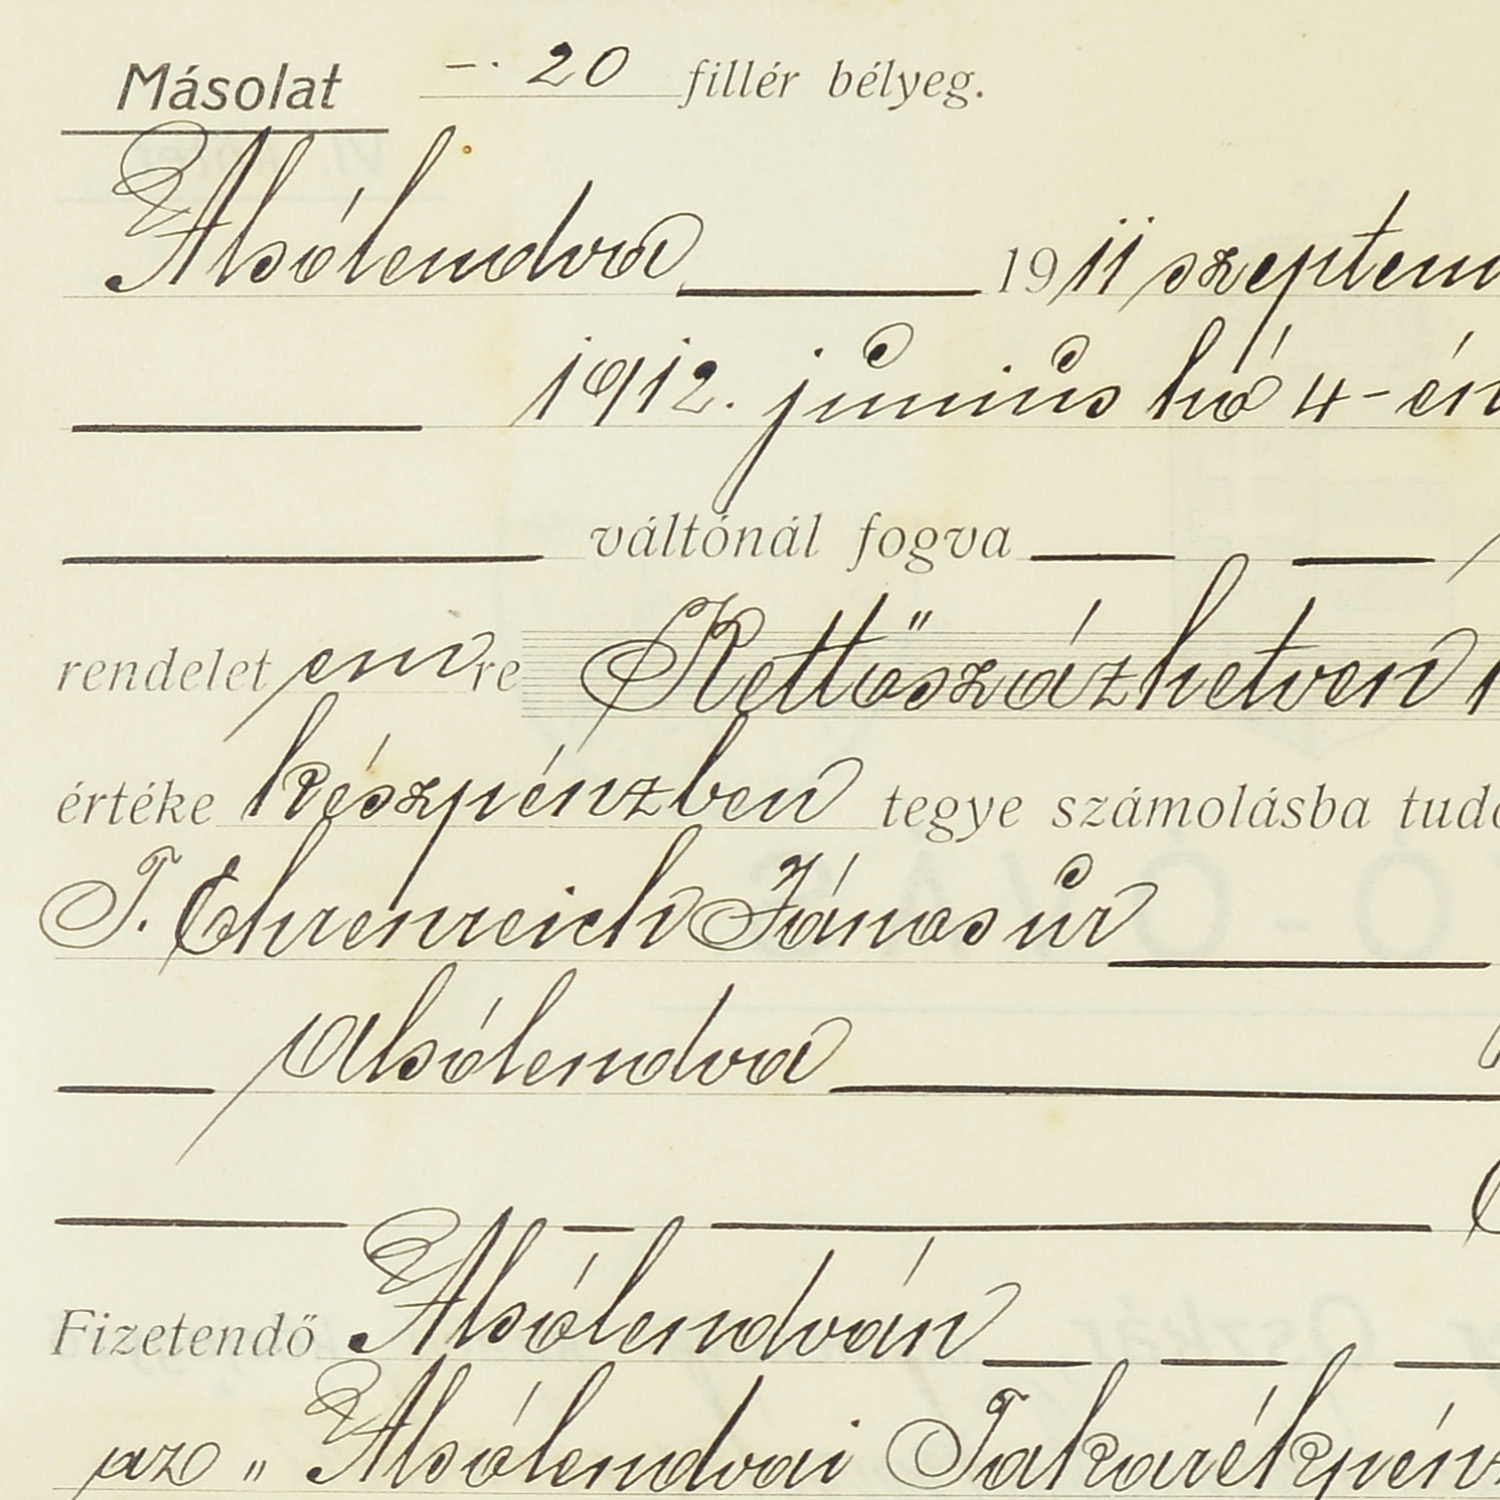 Másolat —. 20 fillér bélyeg.
Alsólendva 1911 szeptem
1912. június hó 4-én
váltónál fogva
rendelet em re Kettőszázhetven
értéke készpénzben tegye számolásba tudó
T. Ehrenreich János úr
Alsólendva
Fizetendő Alsólendván
az „Alsólendvai Takarékpénz